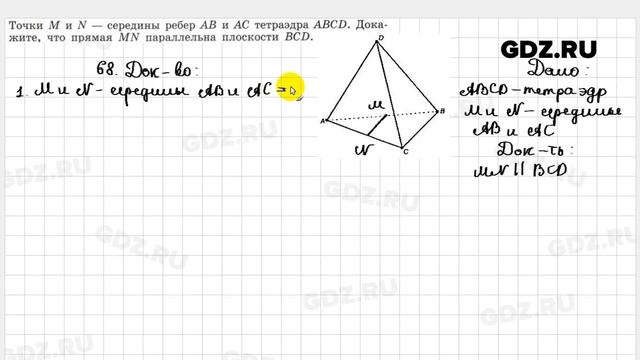 Точки M и N — середины ребер AB и AC тетраэдра ABCD. Дока-
жите, что прямая MN параллельна плоскости BCD.
GDZ.RU
68. Док-во:
1. M и N - середины AB и AC =>
Дано:
ABCD - тетраэдр
M и N - середины
AB и AC
Док-ть:
MN || BCD
D
M
A
B
N
C
GDZ.RU
GDZ.RU
GDZ.RU
GDZ.RU
GDZ.RU
GDZ.RU